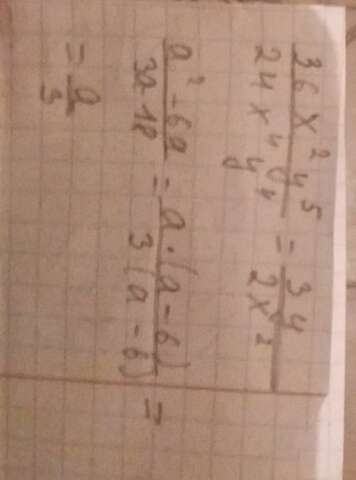 36x²y⁵/24x⁴y⁴ = 3y/2x²
a²-6a/3a-18 = a·(a-6)/3(a-6) =
= a/3